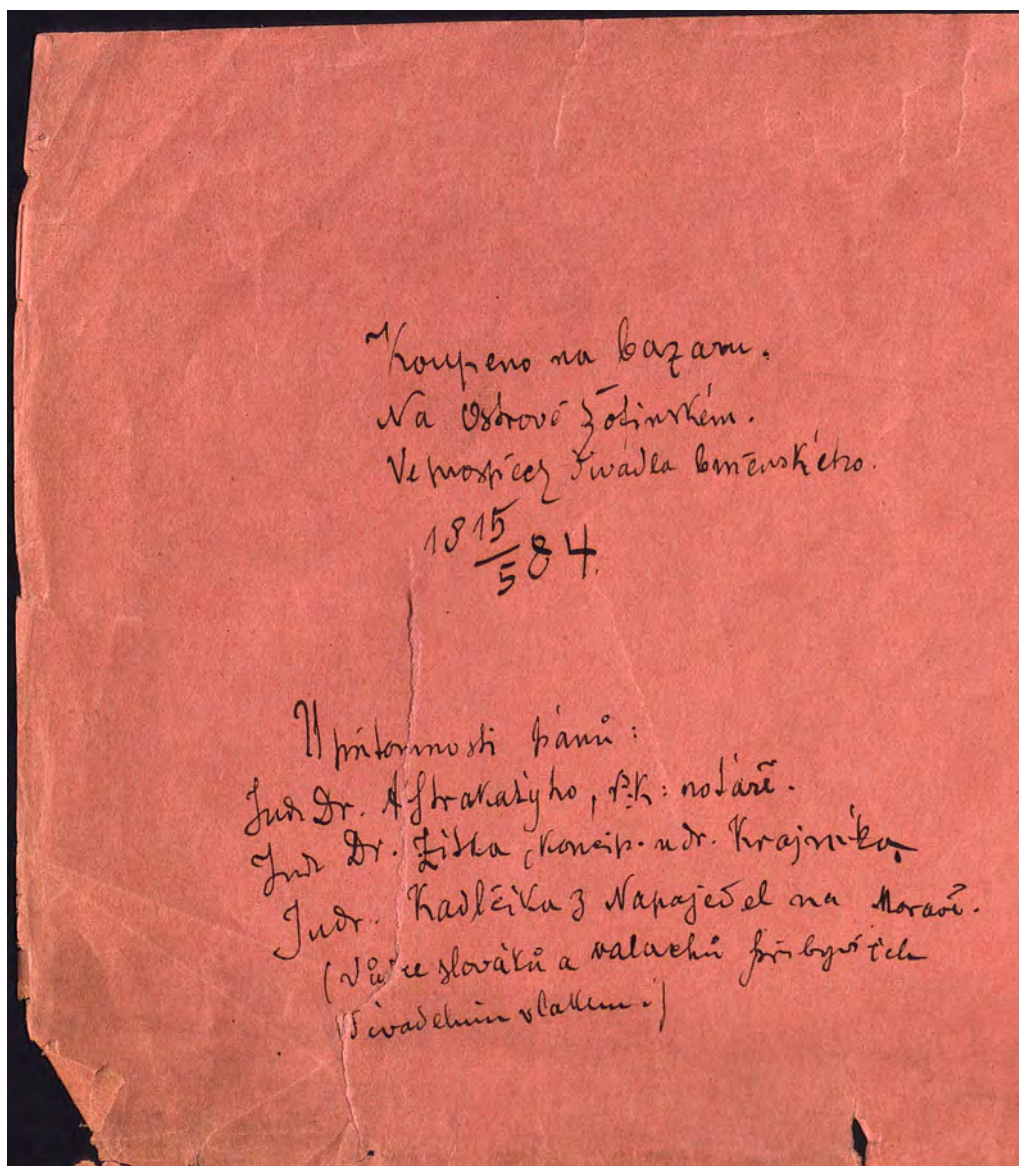 Koupeno na bazaru.
Na Ostrově Žofinském.
Ve prospěch divadla brněnského.
18 15/5 84.
U přítomnosti pánů:
Judr Dr. A Strakatýho, c.k: notáře.
Judr Dr. Žiška, koncip. u dr. Krajníka,
Judr. Kadlčíka z Napajedel na Moravě.
(vůdce slováků a valachů přibyvších
divadelním vlakem.)